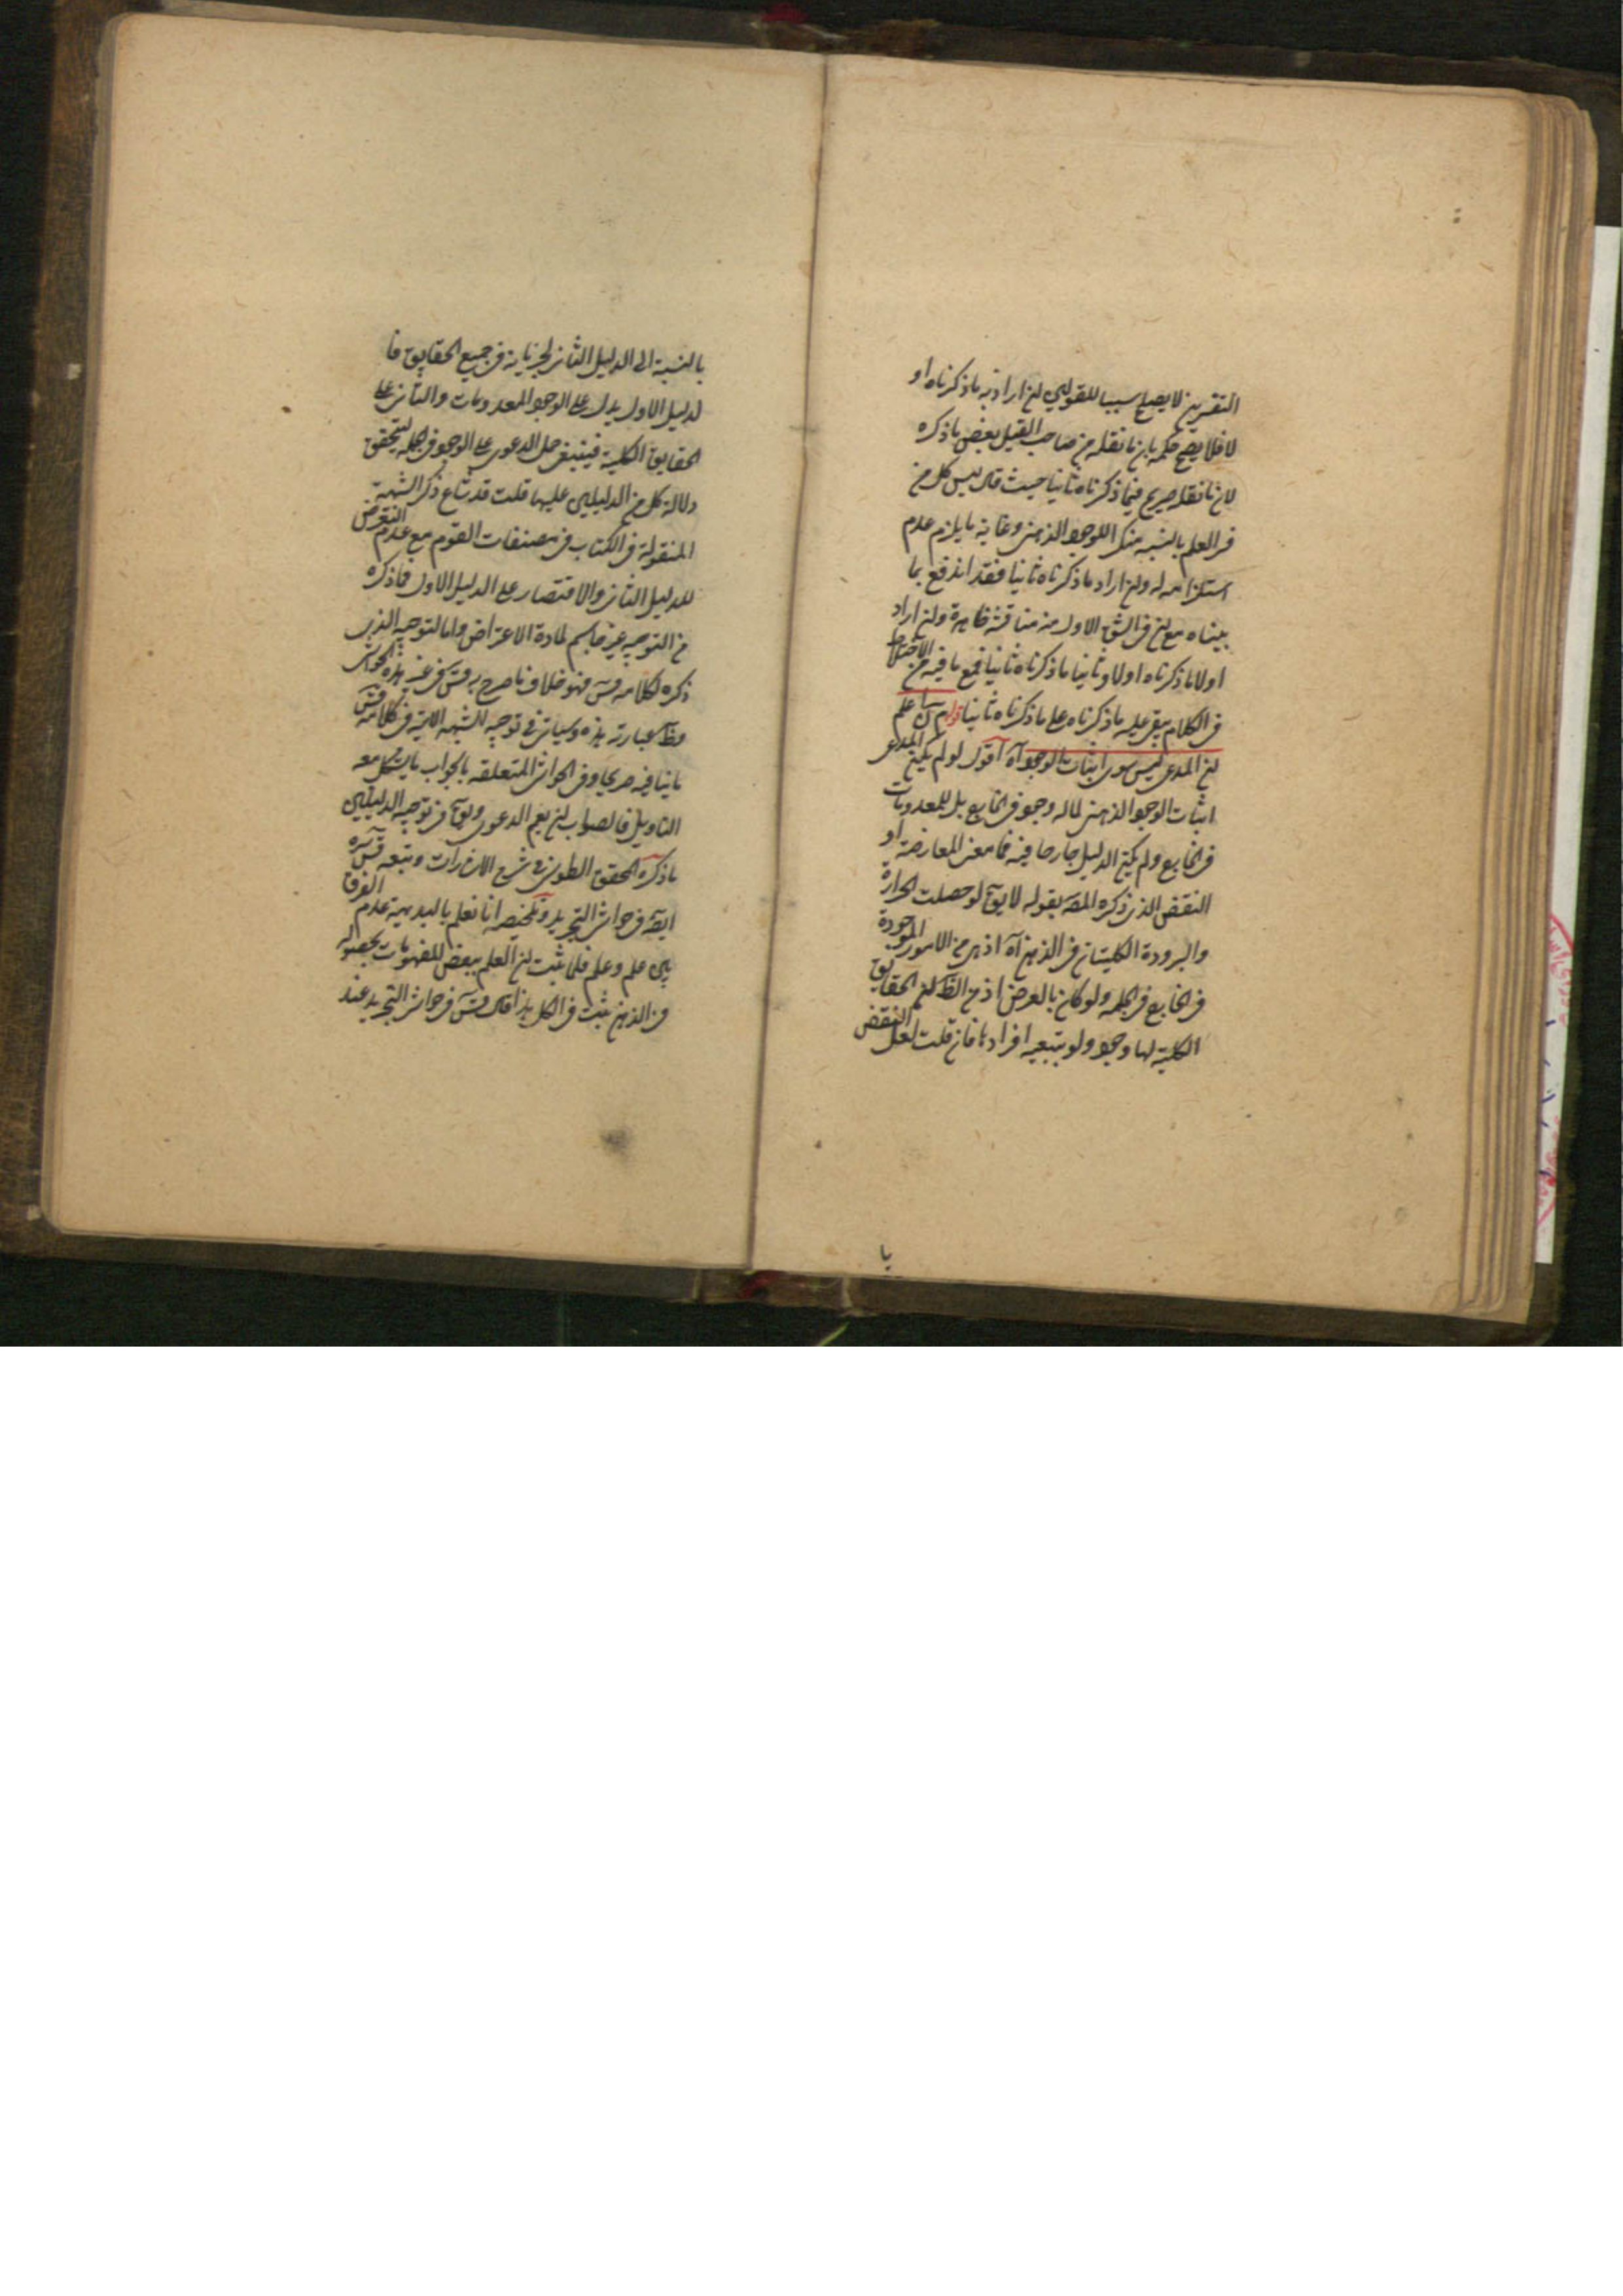 التقريرين لا يصلح سببا للقولين ان اراد به ما ذكرناه او
لا فلا يصح حكمه بان ما نقله من صاحب القيل بعض ما ذكره
لان ما نقله صريح فيما ذكرناه ثانيا حيث قال ليس كل من
في العلم بالشبه منكر اللوجود الذهني وغاية ما يلزم عدم
استلزامه له وان اراد ما ذكرناه ثانيا فقد اندفع بما
بيناه مع ان في الشق الاول منه مناقشة ظاهرة وان اراد
اولا ما ذكرناه اولا وثانيا ما ذكرناه ثانيا فمع ما فيه من الاختلال
في الكلام يبقى عليه ما ذكرناه على ما ذكرناه ثانيا علم
ان المدعى ليس سوى اثبات الوجود آه اقول لو لم يكن المدعى
اثبات الوجود الذهني لما له وجود في الخارج بل للمعدومات
في الخارج ولم يكن الدليل جاريا فيه فما معنى المعارضة او
النقض الذي ذكره المصه بقوله لا يقال لو حصلت الحرارة
والبرودة الكليتان في الذهن آه اذ هي من الامور الموجودة
في الخارج في الجملة ولو كان بالعرض اذ من الظ ان الحقايق
الكلية لها وجود ولو بتبعية افرادها فان قلت لعل النقض
يا
بالنسبة الى الدليل الثاني لجريانه في جميع الحقايق فا
لدليل الاول يدل على الوجود للمعدومات والثاني على
الحقايق الكلية فينبغي حمل الدعوى على الوجود في الجملة ليتحقق
دلالة كل من الدليلين عليها قلت قد شاع ذكر الشبهة
المنقولة في الكتاب في مصنفات القوم مع عدم التعرض
للدليل الثاني والاقتصار على الدليل الاول فما ذكره
من التوجيه غير حاسم لمادة الاعتراض واما التوجيه الذي
ذكره لكلامه قس فهو خلاف ما صرح به قس في غير هذه الحواشي
وظ عبارته هذه وسياتي في توجيه الشبهة الاتية في كلامه قس
ما ينافيه صريحا وفي الحواشي المتعلقة بالجواب ما يشكل معه
التاويل فالصواب ان يعم الدعوى ويق في توجيه الدليلين
ما ذكره المحقق الطوسي في شرح الاشارات وتبعه قس سره
ايضه في حواشي التجريد وتلخيصه انا نعلم بالبديهية عدم الفرق
بين علم وعلم فلما ثبت ان العلم ببعض المفهومات بحصوله
في الذهن ثبت في الكل هذا قال قس في حواشي التجريد عند